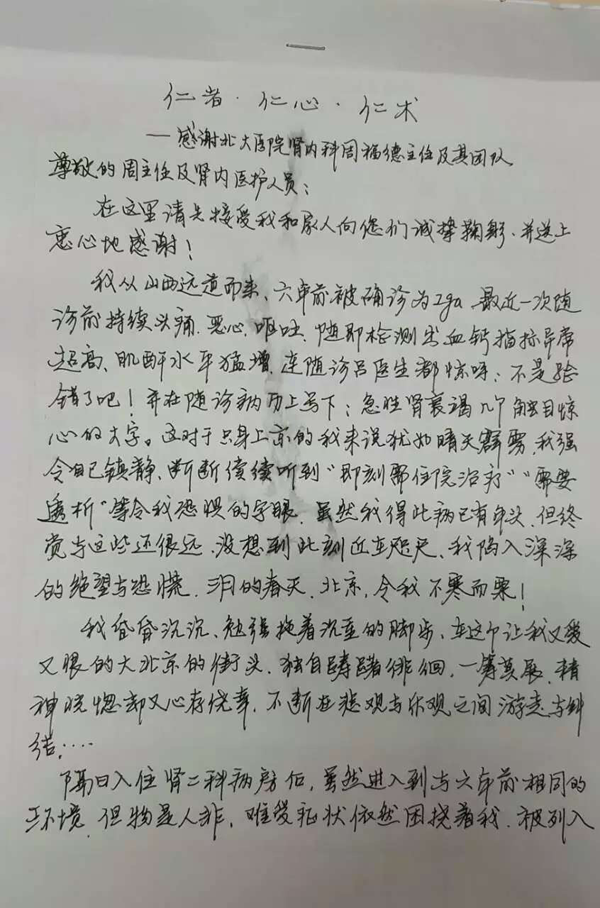 仁者·仁心·仁术
——感谢北大医院肾内科周福德主任及其团队
尊敬的周主任及肾内医护人员：
在这里请先接受我和家人向您们诚挚鞠躬，并送上
衷心地感谢！
我从山西远道而来，六年前被确诊为Iga，最近一次随
诊前持续头痛、恶心、呕吐，随即检测出血钙指标异常
超高、肌酐水平猛增，连随诊吕医生都惊呼：不是验
错了吧！并在随诊病历上写下：急性肾衰竭几个触目惊
心的大字。这对于只身上京的我来说犹如晴天霹雳，我强
令自己镇静，断断续续听到“即刻需住院治疗”“需要
透析”等令我恐惧的字眼，虽然我得此病已有年头，但终
觉与这些还很远，没想到此刻近在咫尺，我陷入深深
的绝望与恐慌，3月的春天，北京，令我不寒而栗！
我昏昏沉沉、勉强拖着沉重的脚步，在这个让我又爱
又恨的大北京的街头，独自踌躇徘徊，一筹莫展，精
神恍惚却又心存侥幸，不断在悲观与乐观之间游走与纠
结……
隔日入住肾二科病房后，虽然进入到与六年前相同的
环境，但物是人非，难受症状依然困扰着我，被列入